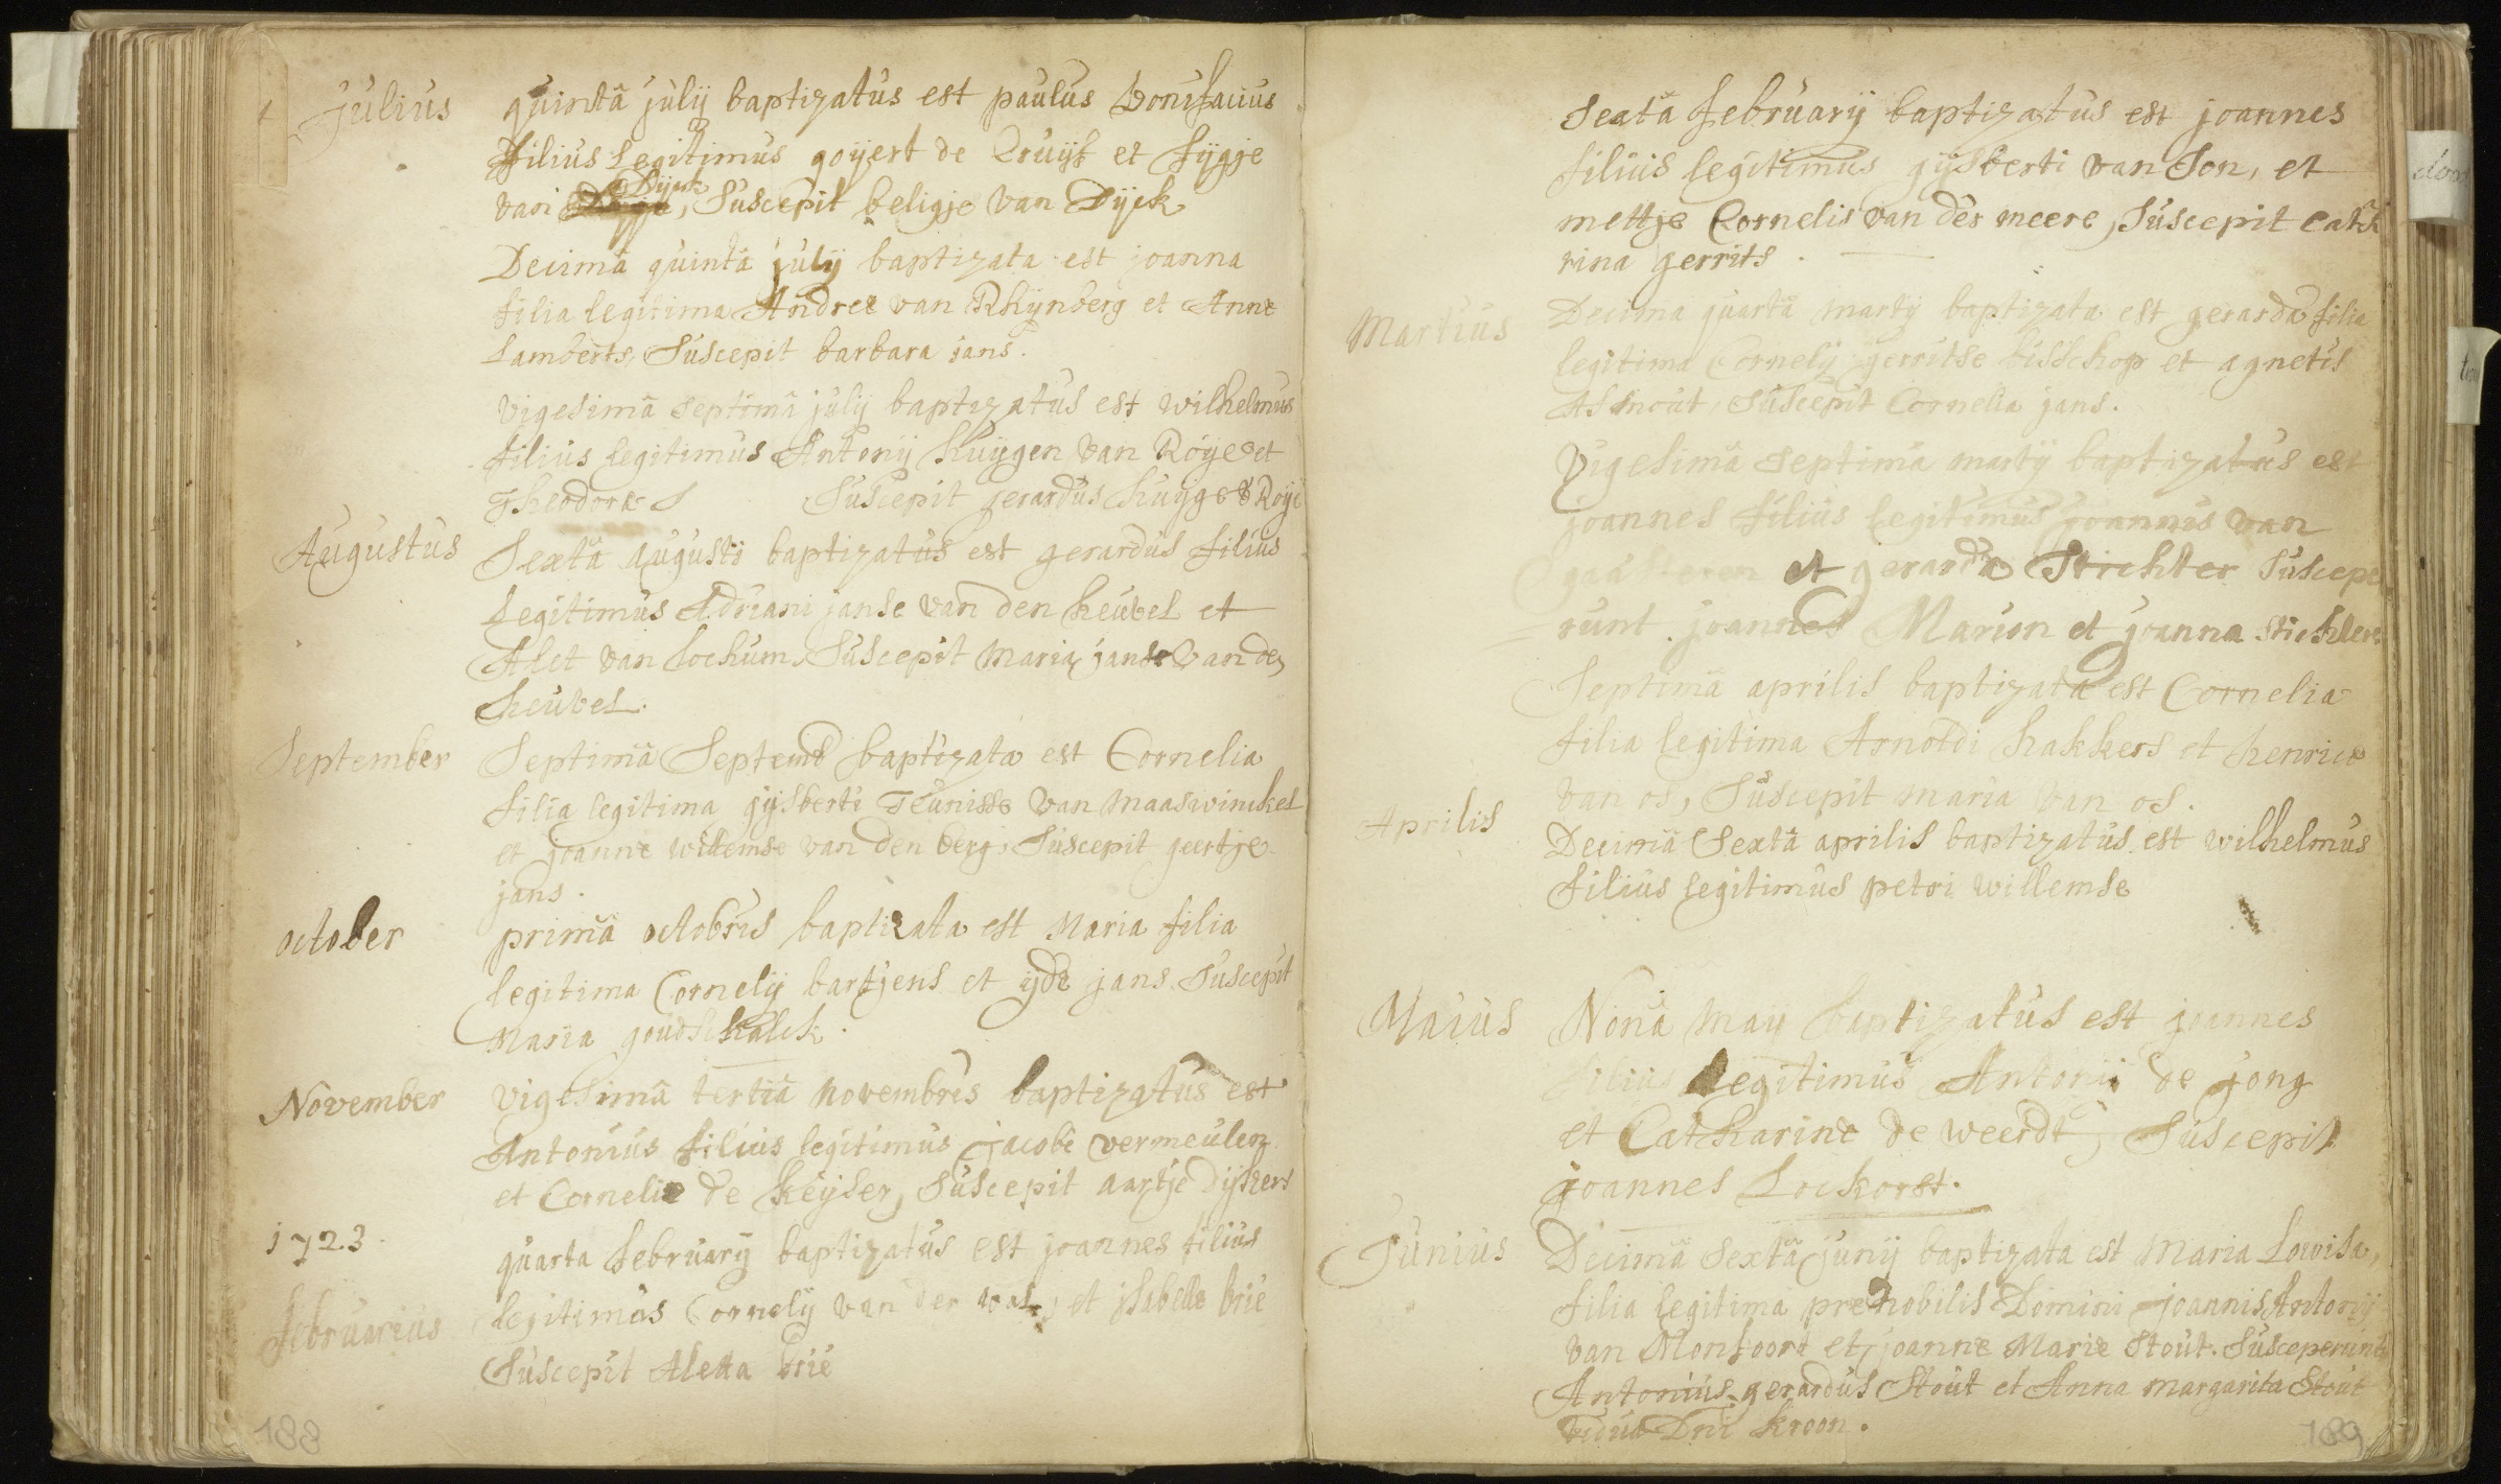 Julius
quintâ julij baptizatus est paulus Bonifacius
filius Legitimus goijert de Cruijf et fijgje
van Dijck, Suscepit beligje van Dijck
Decimâ quintâ julij baptizata est joanna
filia legitima Andreæ van Rhijnberg et Annæ
Lamberts, Suscepit barbara jans.
vigesimâ septimâ julij baptizatus est wilhelmus
filius legitimus Antonij huijgen van Roije et
Theodoræ S Suscepit gerardus huijge v Roije
Augustus
Sextâ augusti baptizatus est gerardus filius
Legitimus Adriani janse van den heuvel et
Alet van Lochum, Suscepit Maria janse van den
heuvel.
September
Septimâ Septemb baptizata est Cornelia
filia legitima gijsberti Teunisse van maaswinckel
et joannæ willemse van den berg, Suscepit geertje
jans.
october
primâ octobris baptizata est Maria filia
legitima Cornelij bartjens et ijdæ jans Suscepit
Maria goudschalck.
November
vigesimâ tertiâ novembris baptizatus est
Antonius filius legitimus jacobi vermeulen
et Corneliæ de keijser, Suscepit aartje dijkers
1723.
februarius
quarta februarij baptizatus est joannes filius
legitimus Cornelij van der wal, et jsabellæ brie
Suscepit Aletta brie
188
Sextâ februarij baptizatus est joannes
filius legitimus gijsberti van Son, et
mettje Cornelis van der meere, Suscepit cath
rina gerrits.
Martius
Decima quartâ martij baptizata est gerarda filia
legitima Cornelij gerritse bisschop et agnetis
Asmout, Suscepit Cornelia jans.
Vigesimâ septimâ martij baptizatus est
joannes filius legitimus joannis van
gaasteren et gerardæ Stichter Suscepe
runt joannes Marion et joanna Stichters
Septimâ aprilis baptizata est Cornelia
filia legitima Arnoldi hakkers et henricæ
van os, Suscepit maria van os.
Aprilis
Decimâ Sextâ aprilis baptizatus est wilhelmus
filius legitimus petri willemse
Maius
Nonâ maij baptizatus est joannes
filius Legitimus Antonii de jong
et Catharinæ de weerdt, Suscepit
joannes Lockorst.
Junius
Decimâ Sextâ junij baptizata est Maria Lowisa,
filia legitima prænobilis Domini joannis Antonij
van Monfoort et joannæ Mariæ Stout. Susceperunt
Antonius gerardus Stout et Anna margarita Stout
vidua Dni kroon.
189